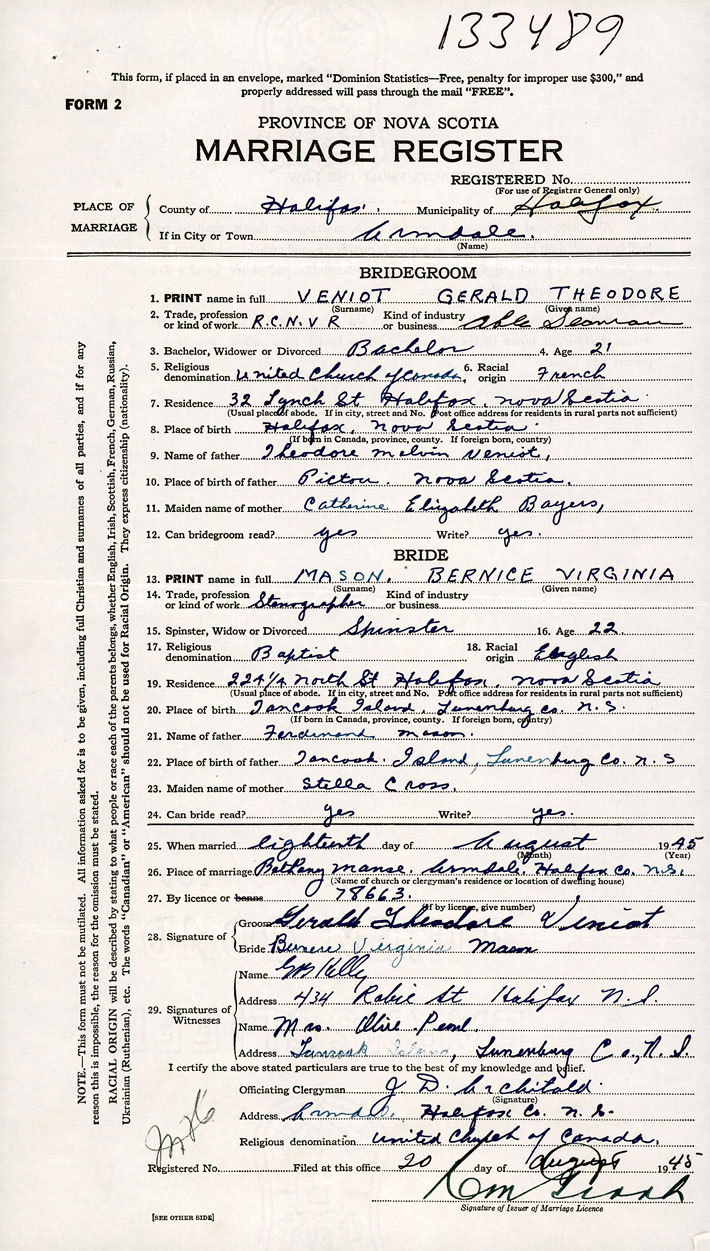 133489
This form, if placed in an envelope, marked "Dominion Statistics—Free, penalty for improper use $300," and
properly addressed will pass through the mail "FREE".
FORM 2
PROVINCE OF NOVA SCOTIA
MARRIAGE REGISTER
REGISTERED No.
(For use of Registrar General only)
PLACE OF MARRIAGE
County of Halifax. Municipality of Halifax
If in City or Town Armdale.
(Name)
BRIDEGROOM
1. PRINT name in full VENIOT GERALD THEODORE
(Surname) (Given name)
2. Trade, profession or kind of work R.C.N.V.R Kind of industry or business Able Seaman
3. Bachelor, Widower or Divorced Bachelor 4. Age 21
5. Religious denomination United Church of Canada. 6. Racial origin French
7. Residence 32 Lynch St Halifax, Nova Scotia
(Usual place of abode. If in city, street and No. Post office address for residents in rural parts not sufficient)
8. Place of birth Halifax, Nova Scotia
(If born in Canada, province, county. If foreign born, country)
9. Name of father Theodore Melvin Veniot,
10. Place of birth of father Pictou. Nova Scotia.
11. Maiden name of mother Catherine Elizabeth Bayers,
12. Can bridegroom read? yes Write? yes.
BRIDE
13. PRINT name in full MASON. BERNICE VIRGINIA
(Surname) (Given name)
14. Trade, profession or kind of work Stenographer Kind of industry or business
15. Spinster, Widow or Divorced Spinster 16. Age 22
17. Religious denomination Baptist 18. Racial origin English
19. Residence 224 1/2 North St Halifax, Nova Scotia
(Usual place of abode. If in city, street and No. Post office address for residents in rural parts not sufficient)
20. Place of birth Tancook Island, Lunenburg Co. N.S.
(If born in Canada, province, county. If foreign born, country)
21. Name of father Ferdinand Mason.
22. Place of birth of father Tancook Island, Lunenburg Co. N.S
23. Maiden name of mother Stella Cross.
24. Can bride read? yes Write? yes.
25. When married Eighteenth day of August 1945
(Month) (Year)
26. Place of marriage Bethany Manse, Armdale, Halifax Co. N.S.
(Name of church or clergyman's residence or location of dwelling house)
27. By licence or banns 78663.
(If by licence, give number)
28. Signature of
Groom Gerald Theodore Veniot
Bride Bernice Virginia Mason
29. Signatures of Witnesses
Name Kelly
Address 434 Robie St Halifax N.S.
Name Mrs. Olive
Address Tancook Island, Lunenburg Co., N.S.
I certify the above stated particulars are true to the best of my knowledge and belief.
Officiating Clergyman J D. Archibald.
(Signature)
Address Armdale, Halifax Co. N.S.
Religious denomination United Church of Canada.
Registered No. Filed at this office 20 day of August 1945
Signature of Issuer of Marriage Licence
[SEE OTHER SIDE]
NOTE.—This form must not be mutilated. All information asked for is to be given, including full Christian and surnames of all parties, and if for any
reason this is impossible, the reason for the omission must be stated.
RACIAL ORIGIN will be described by stating to what people or race each of the parents belongs, whether English, Irish, Scottish, French, German, Russian,
Ukrainian (Ruthenian), etc. The words "Canadian" or "American" should not be used for Racial Origin. They express citizenship (nationality).